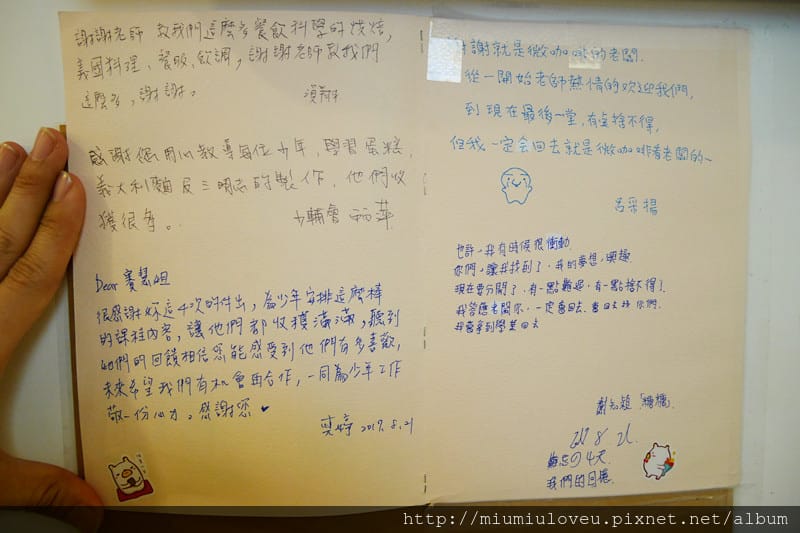 謝謝老師 教我們這麼多餐飲料學的烘焙,
義國料理、餐服、飲調,謝謝老師教我們
這麼多,謝謝。
感謝您用心教導每位少年,學習蛋糕,
義大利麵及三明志的製作,他們收
獲很多。
少輔會
Dear 賽慧姐
很感謝妳這4次的付出,為少年安排這麼棒
的課程內容,讓他們都收穫滿滿,聽到
他們的回饋相信您能感受到他們有多喜歡,
未來希望我們有机會再合作,一同為少年工作
敬一份心力。感謝您♥
2017.8.21
謝謝就是微咖啡的老闆.
從一開始老師熱情的欢迎我們,
到現在最後一堂,有点捨不得,
但我一定会回去就是微咖啡看老闆的~
呂采楊
也許,我有時候很衝動
你們,讓我找到了,我的夢想,興趣
現在要分開了,有一點難過,有一點捨不得了.
我答應老闆你,一定會回去,會回去找你們.
我會拿到學業回去
「糖糖」
難忘の4天
我們的回憶
http://miumiuloveu.pixnet.net/album